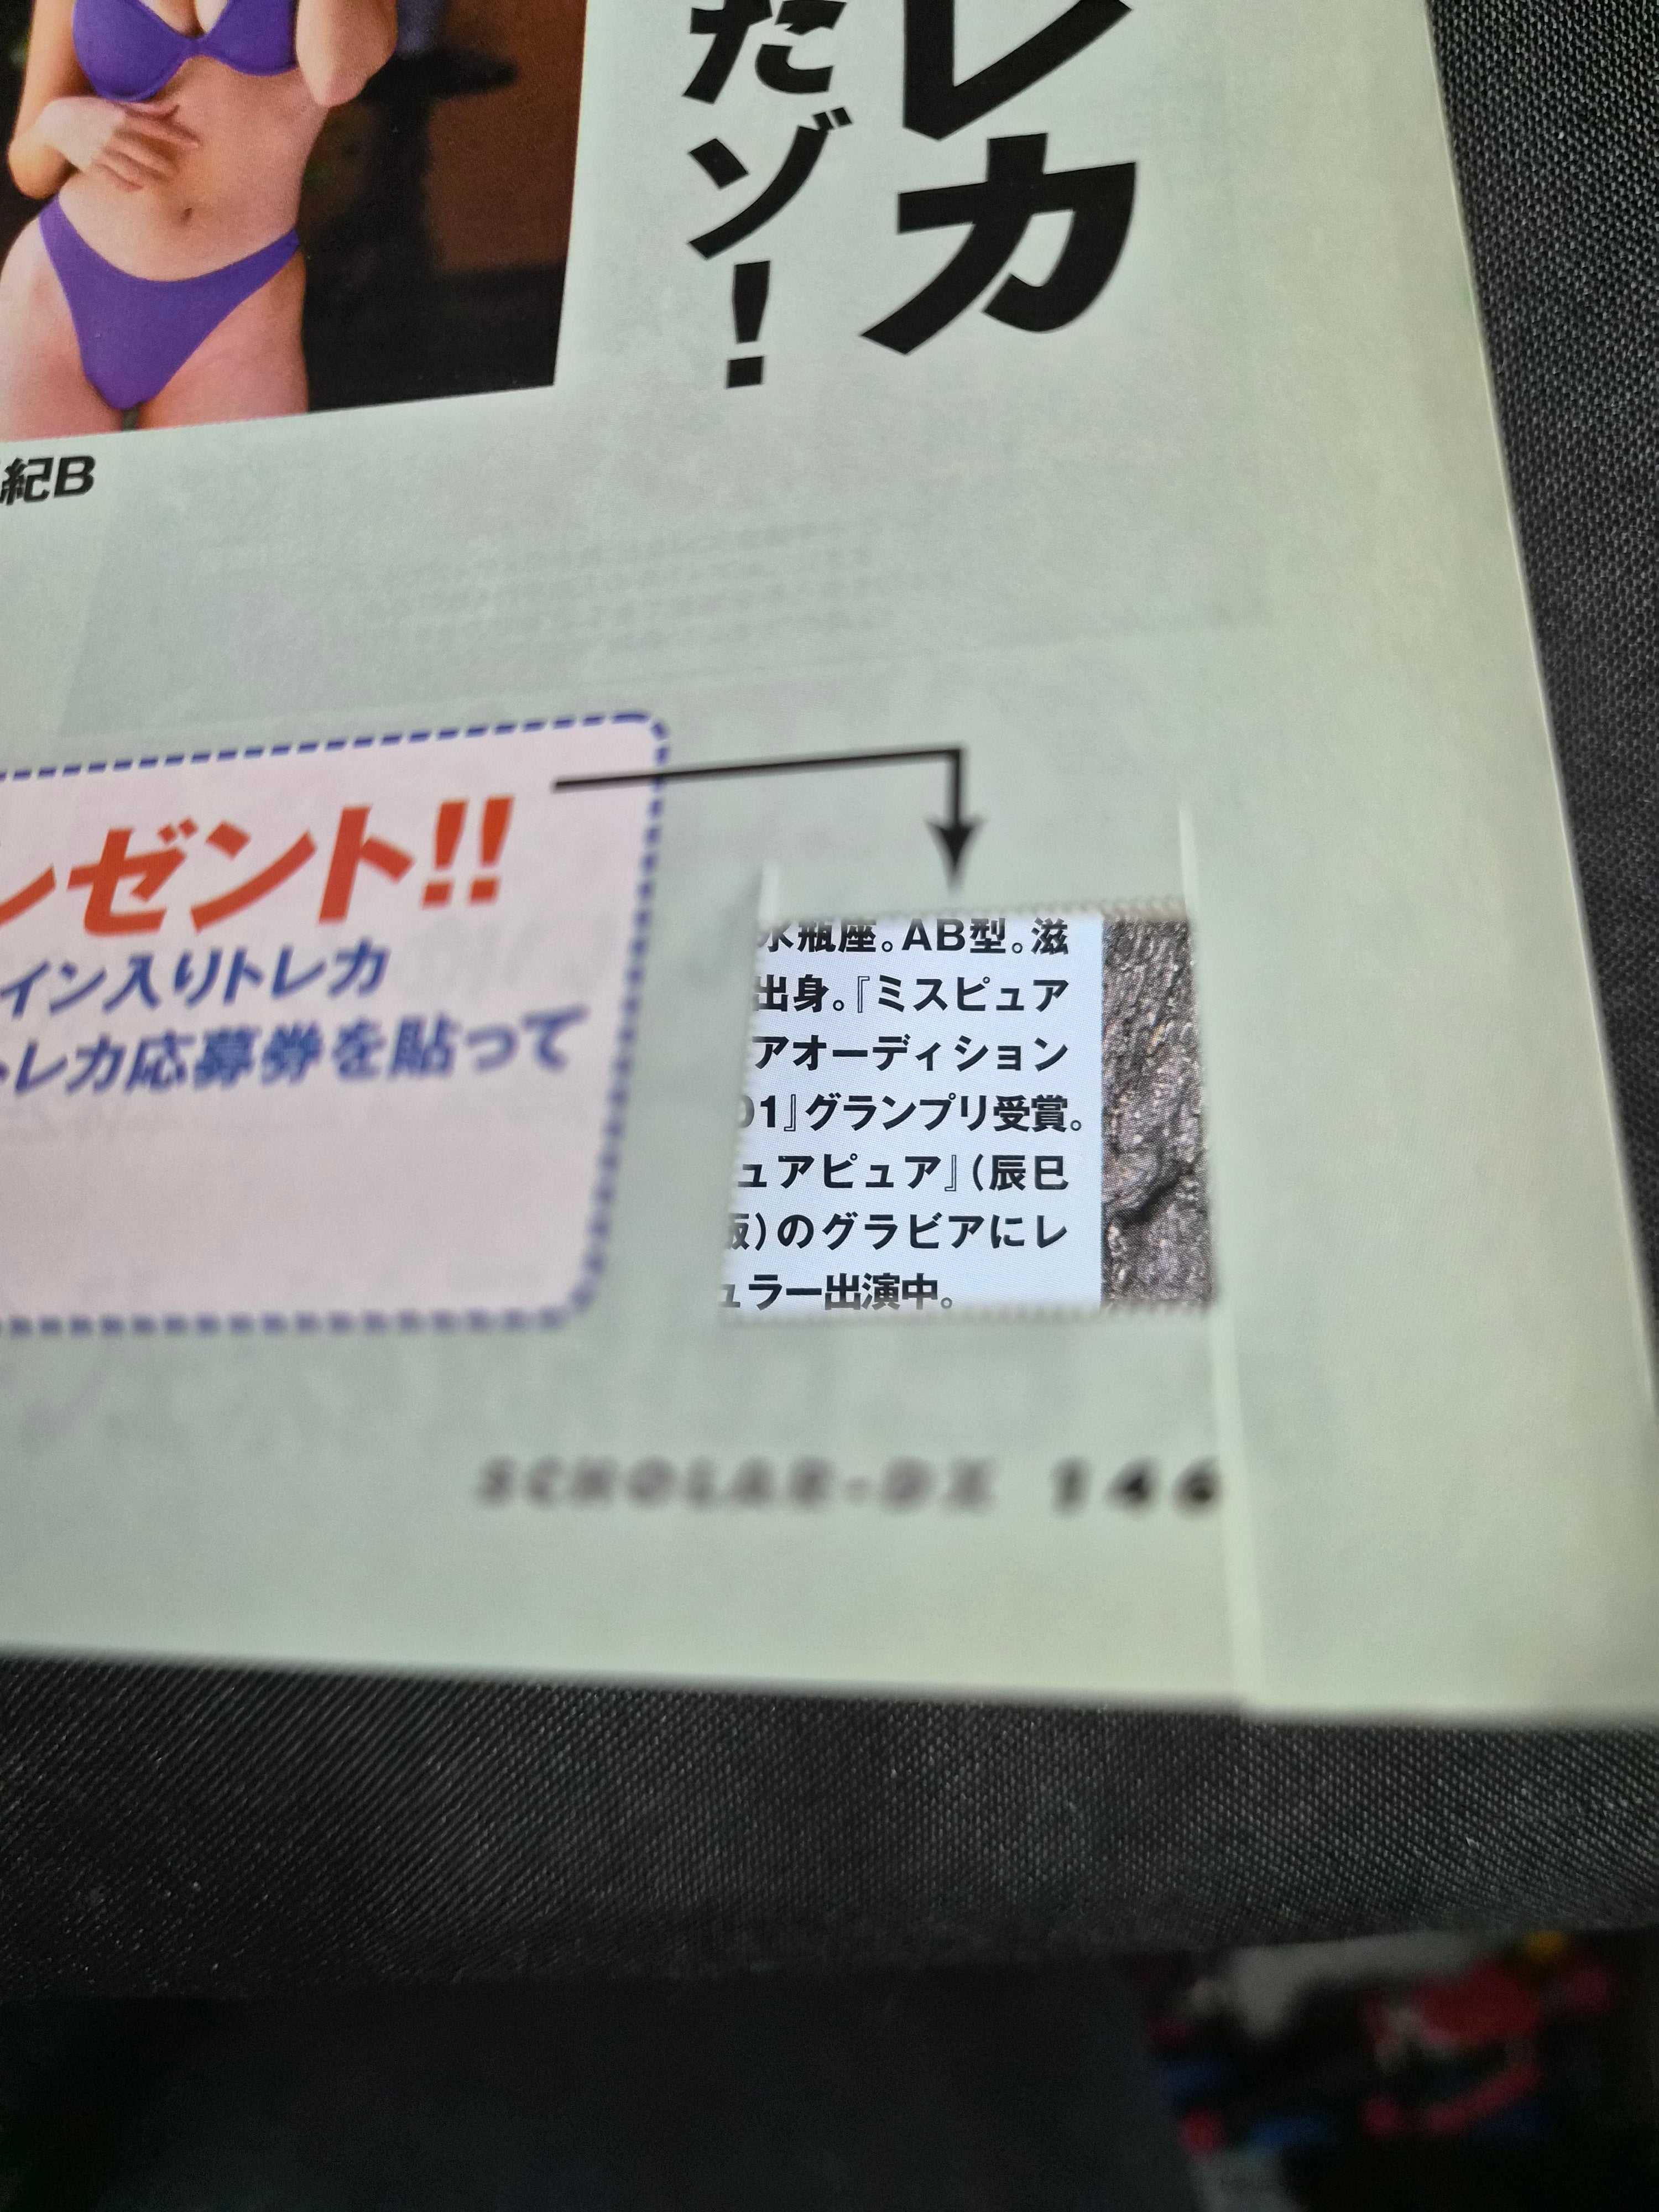 レカ
だゾ!
紀B
レゼント!!
イン入りトレカ
トレカ応募券を貼って
水瓶座。AB型。滋
出身。『ミスピュア
アオーディション
01』グランプリ受賞。
ュアピュア』(辰巳
版)のグラビアにレ
ュラー出演中。
SCHOLAR-DX 146